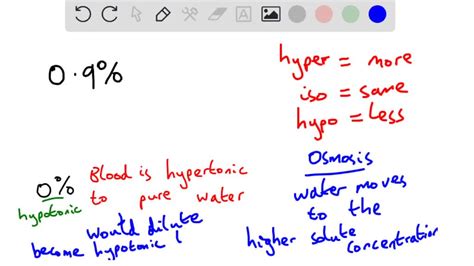 0.9%
hyper = more
iso = same
hypo = Less
0%
hypotonic
Blood is hypertonic
to pure water
would dilute
become hypotonic (
Osmosis
water moves
to the
higher solute
concentration